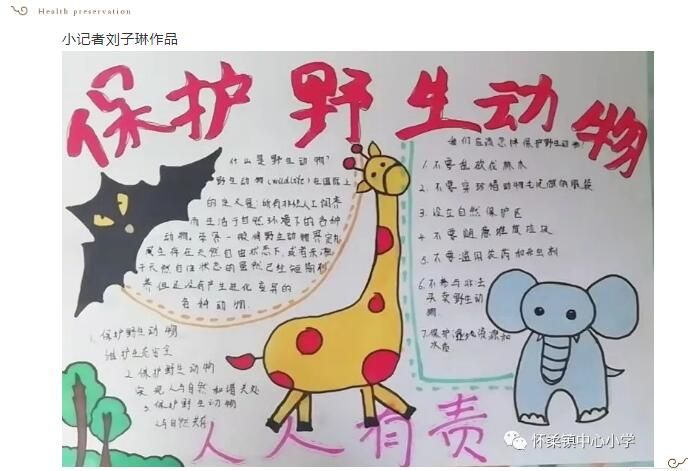 Health preservation
小记者刘子琳作品
保护野生动物
什么是野生动物?
野生动物(wildlife)在国际上
的定义是:所有非经人工饲养
而生活于自然环境下的各种
动物。学界一般将野生动物界定为
生存在天然自由状态下,或者来源
于天然自由状态的虽然已经短期驯
养但还没有产生进化变异的
各种动物.
1.保护野生动物
维护生态安全
2.保护野生动物
实现人与自然和谐共处
3.保护野生动物
与自然共存
我们应该怎样保护野生动物?
1.不要乱砍伐林木
2.不要穿珍稀动物毛皮做的服装
3.设立自然保护区
4.不要随意堆放垃圾
5.不要滥用农药和杀虫剂
6.不参与非法
买卖野生动
物.
7.保护湿地资源和
水质
人人有责
怀柔镇中心小学